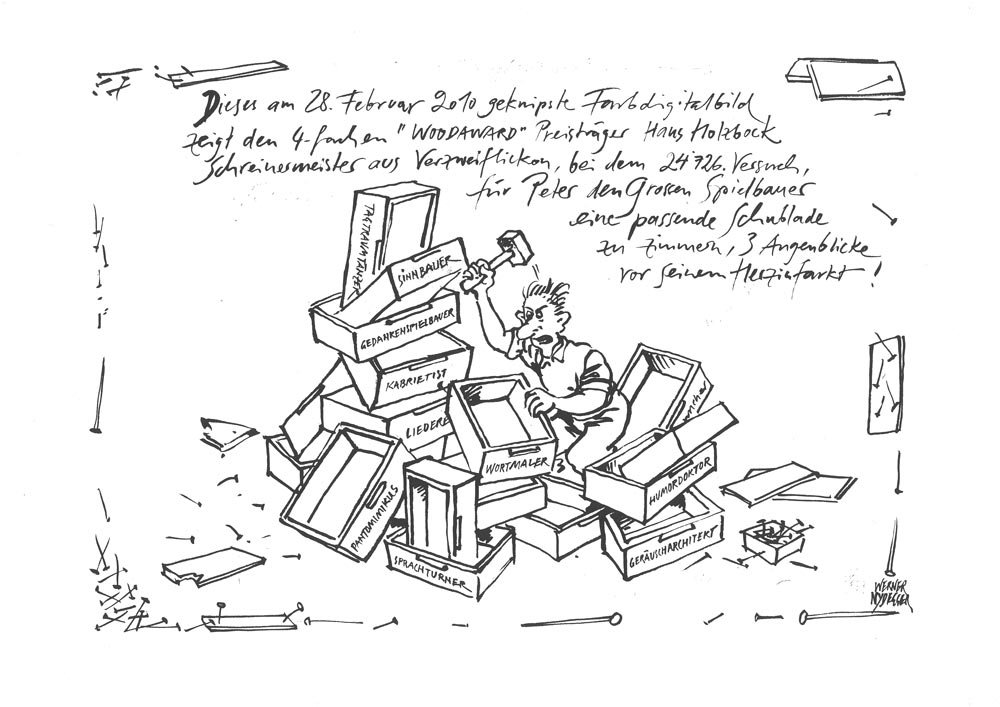 Dieses am 28. Februar 2010 geknipste Farbdigitalbild
zeigt den 4-fachen "WOODAWARD" Preisträger Hans Holzbock
Schreinermeister aus Verzweiflickon, bei dem 24'726. Versuch,
für Peter den Grossen Spielbauer
eine passende Schublade
zu zimmern, 3 Augenblicke
vor seinem Herzinfarkt!
TAGTRAUMTÄNZER
SINNBAUER
GEDAHRENSPIELBAUER
KABRIETIST
LIEDERE
WORTMALER
HUMORDOKTOR
PANTOMIMIKUS
SPRACHTURNER
GERÄUSCHARCHITEKT
WERNER
NYDEGGER